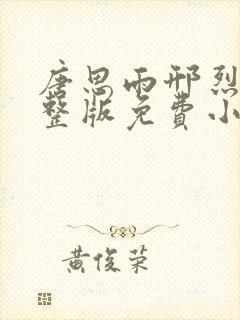 唐思雨邢烈
整版免费小
黄俊荣